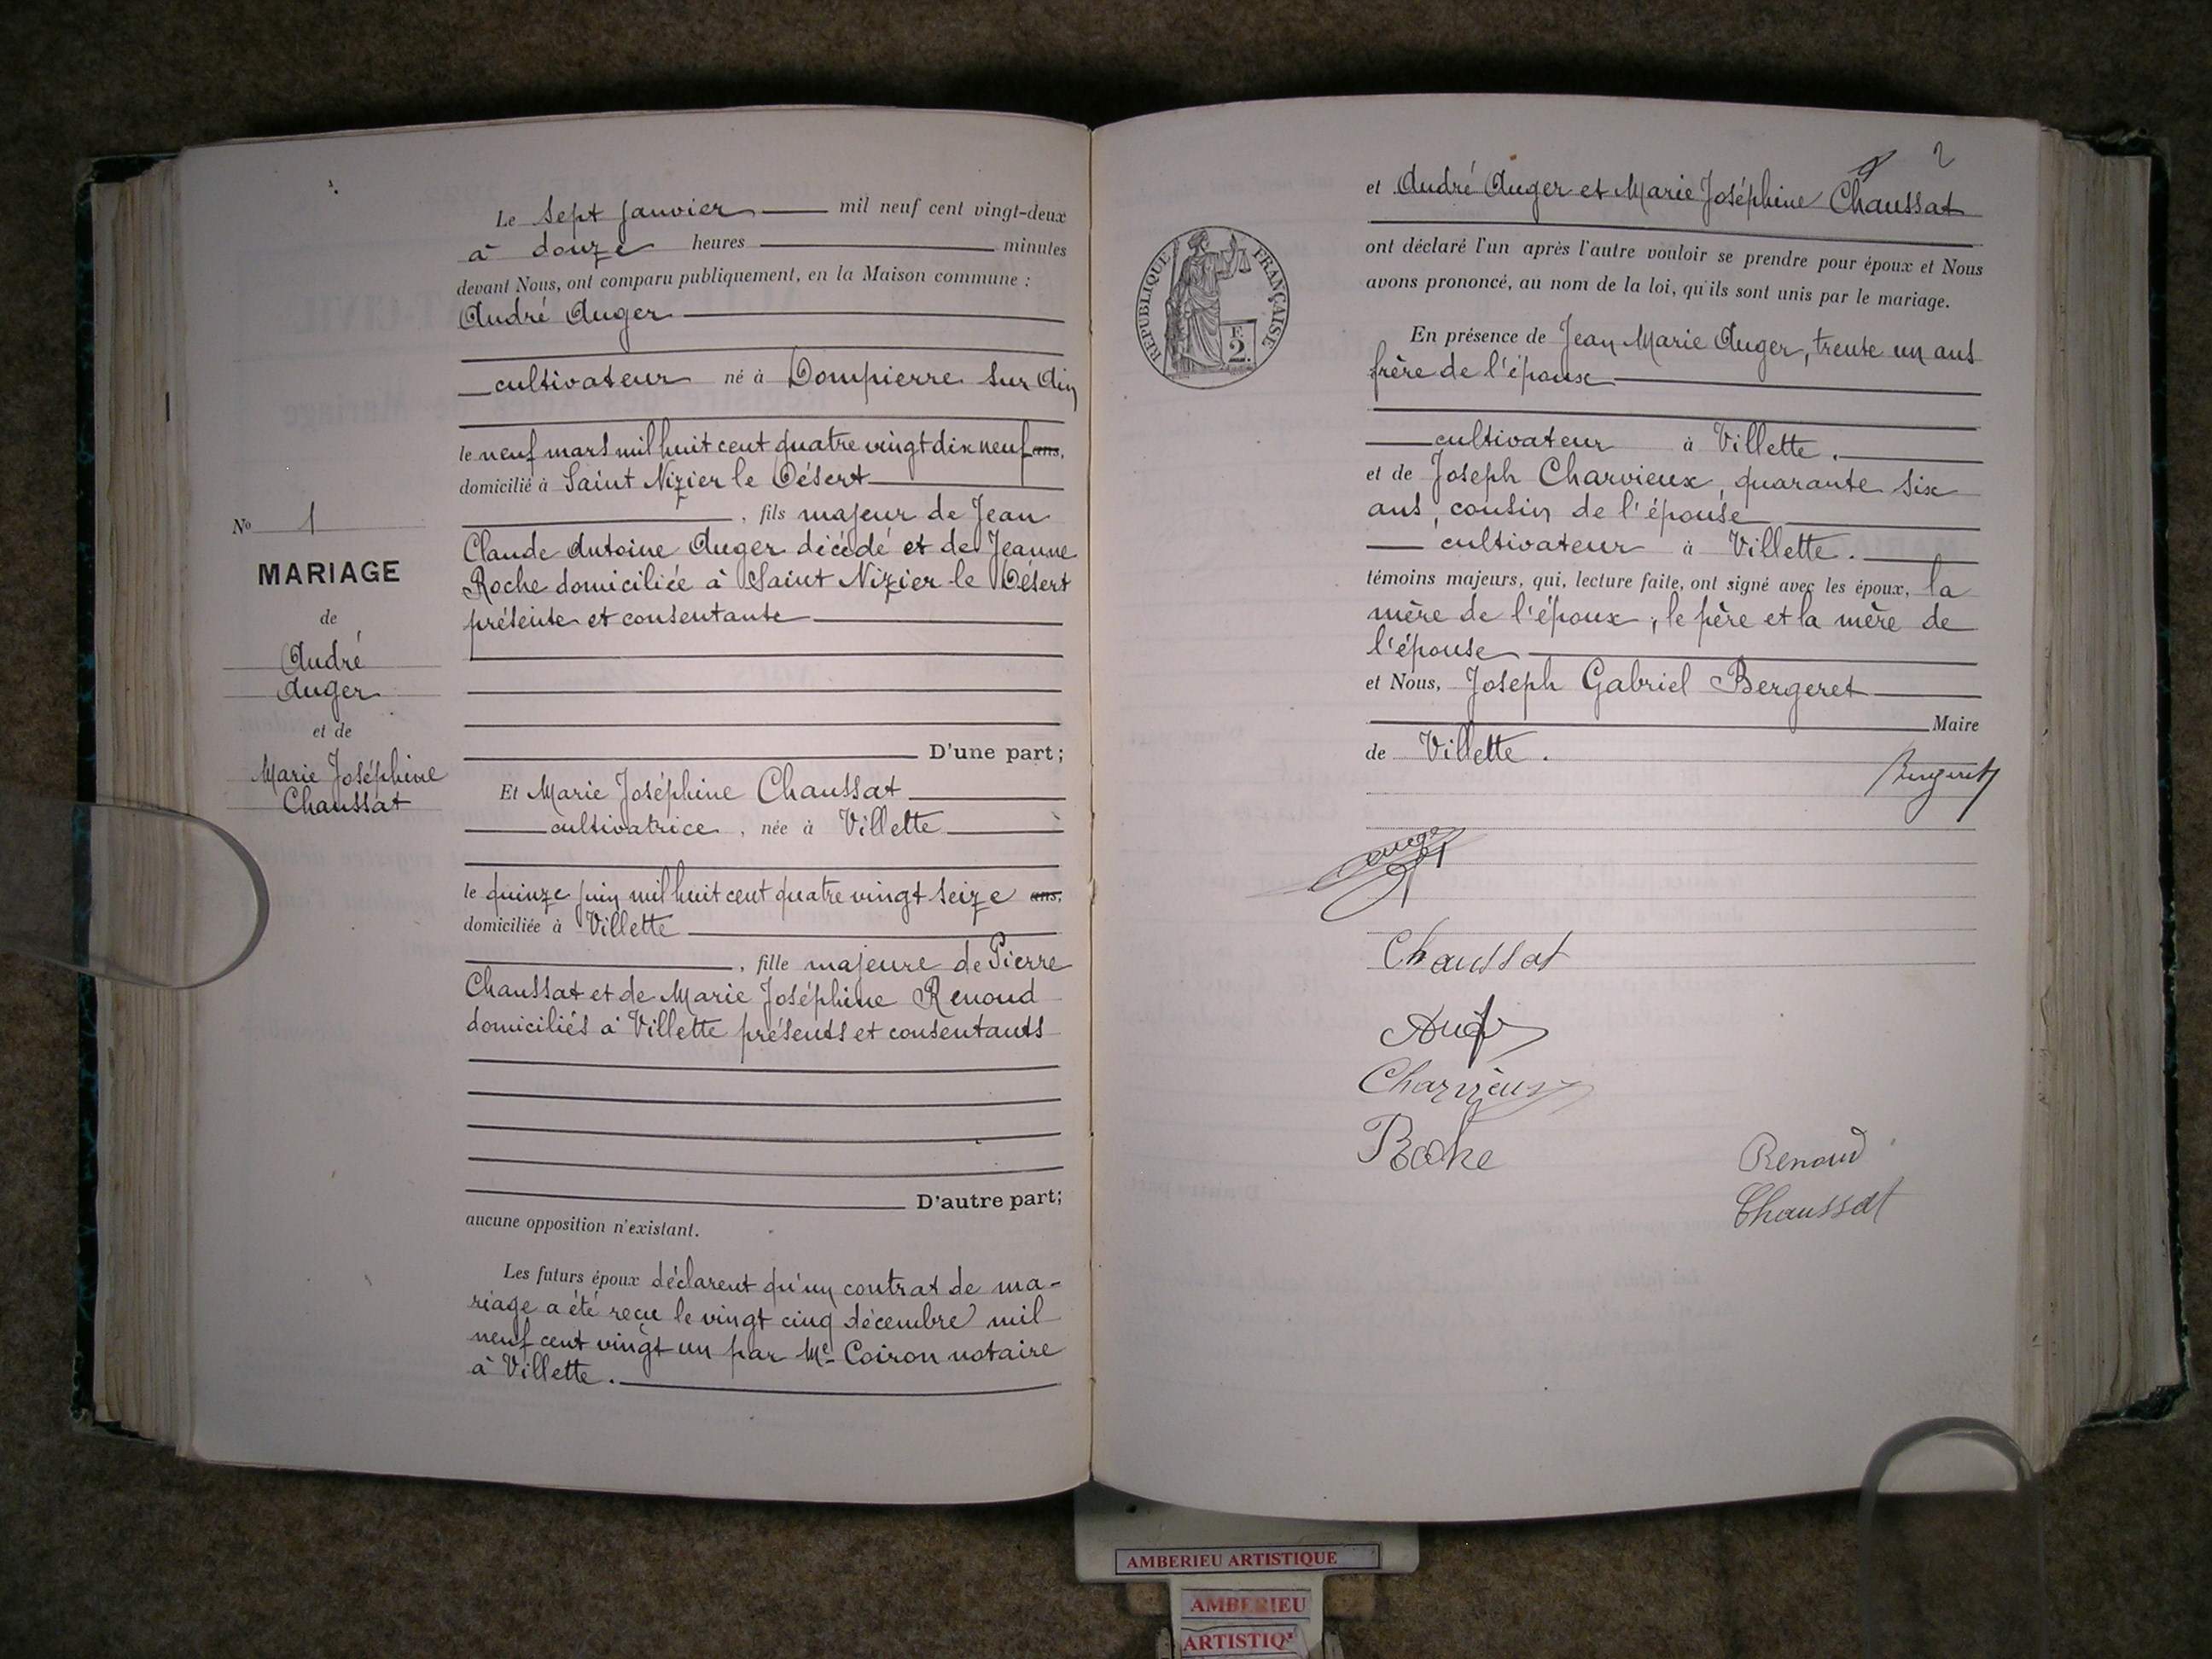 Le sept janvier mil neuf cent vingt-deux
à douze heures minutes
devant Nous, ont comparu publiquement, en la Maison commune :
André Auger
cultivateur né à Dompierre sur Ain
le neuf mars mil huit cent quatre vingt dix neuf ans,
domicilié à Saint Nizier le Désert
, fils majeur de Jean
Claude Antoine Auger décédé et de Jeanne
Roche domiciliée à Saint Nizier le Désert
présente et consentante
D'une part;
Et Marie Joséphine Chaussat
cultivatrice, née à Villette
le quinze juin mil huit cent quatre vingt seize ans,
domiciliée à Villette
, fille majeure de Pierre
Chaussat et de Marie Joséphine Renoud
domiciliés à Villette présents et consentants
D'autre part;
aucune opposition n'existant.
Les futurs époux déclarent qu'un contrat de ma-
riage a été reçu le vingt cinq décembre mil
neuf cent vingt un par Me Coiron notaire
à Villette.
No 1
MARIAGE
de
André
Auger
et de
Marie Joséphine
Chaussat
2
et André Auger et Marie Joséphine Chaussat
ont déclaré l'un après l'autre vouloir se prendre pour époux et Nous
avons prononcé, au nom de la loi, qu'ils sont unis par le mariage.
RÉPUBLIQUE FRANÇAISE
F.
2.
En présence de Jean Marie Auger, trente un ans
frère de l'époux
cultivateur à Villette.
et de Joseph Charvieux, quarante six
ans, cousin de l'épouse
cultivateur à Villette.
témoins majeurs, qui, lecture faite, ont signé avec les époux, la
mère de l'époux, le père et la mère de
l'épouse
et Nous, Joseph Gabriel Bergeret
Maire
de Villette.
Bergeret
auger
Chaussat
Charvieux
Roche
Renoud
Chaussat
AMBERIEU ARTISTIQUE
AMBERIEU
ARTISTIQ